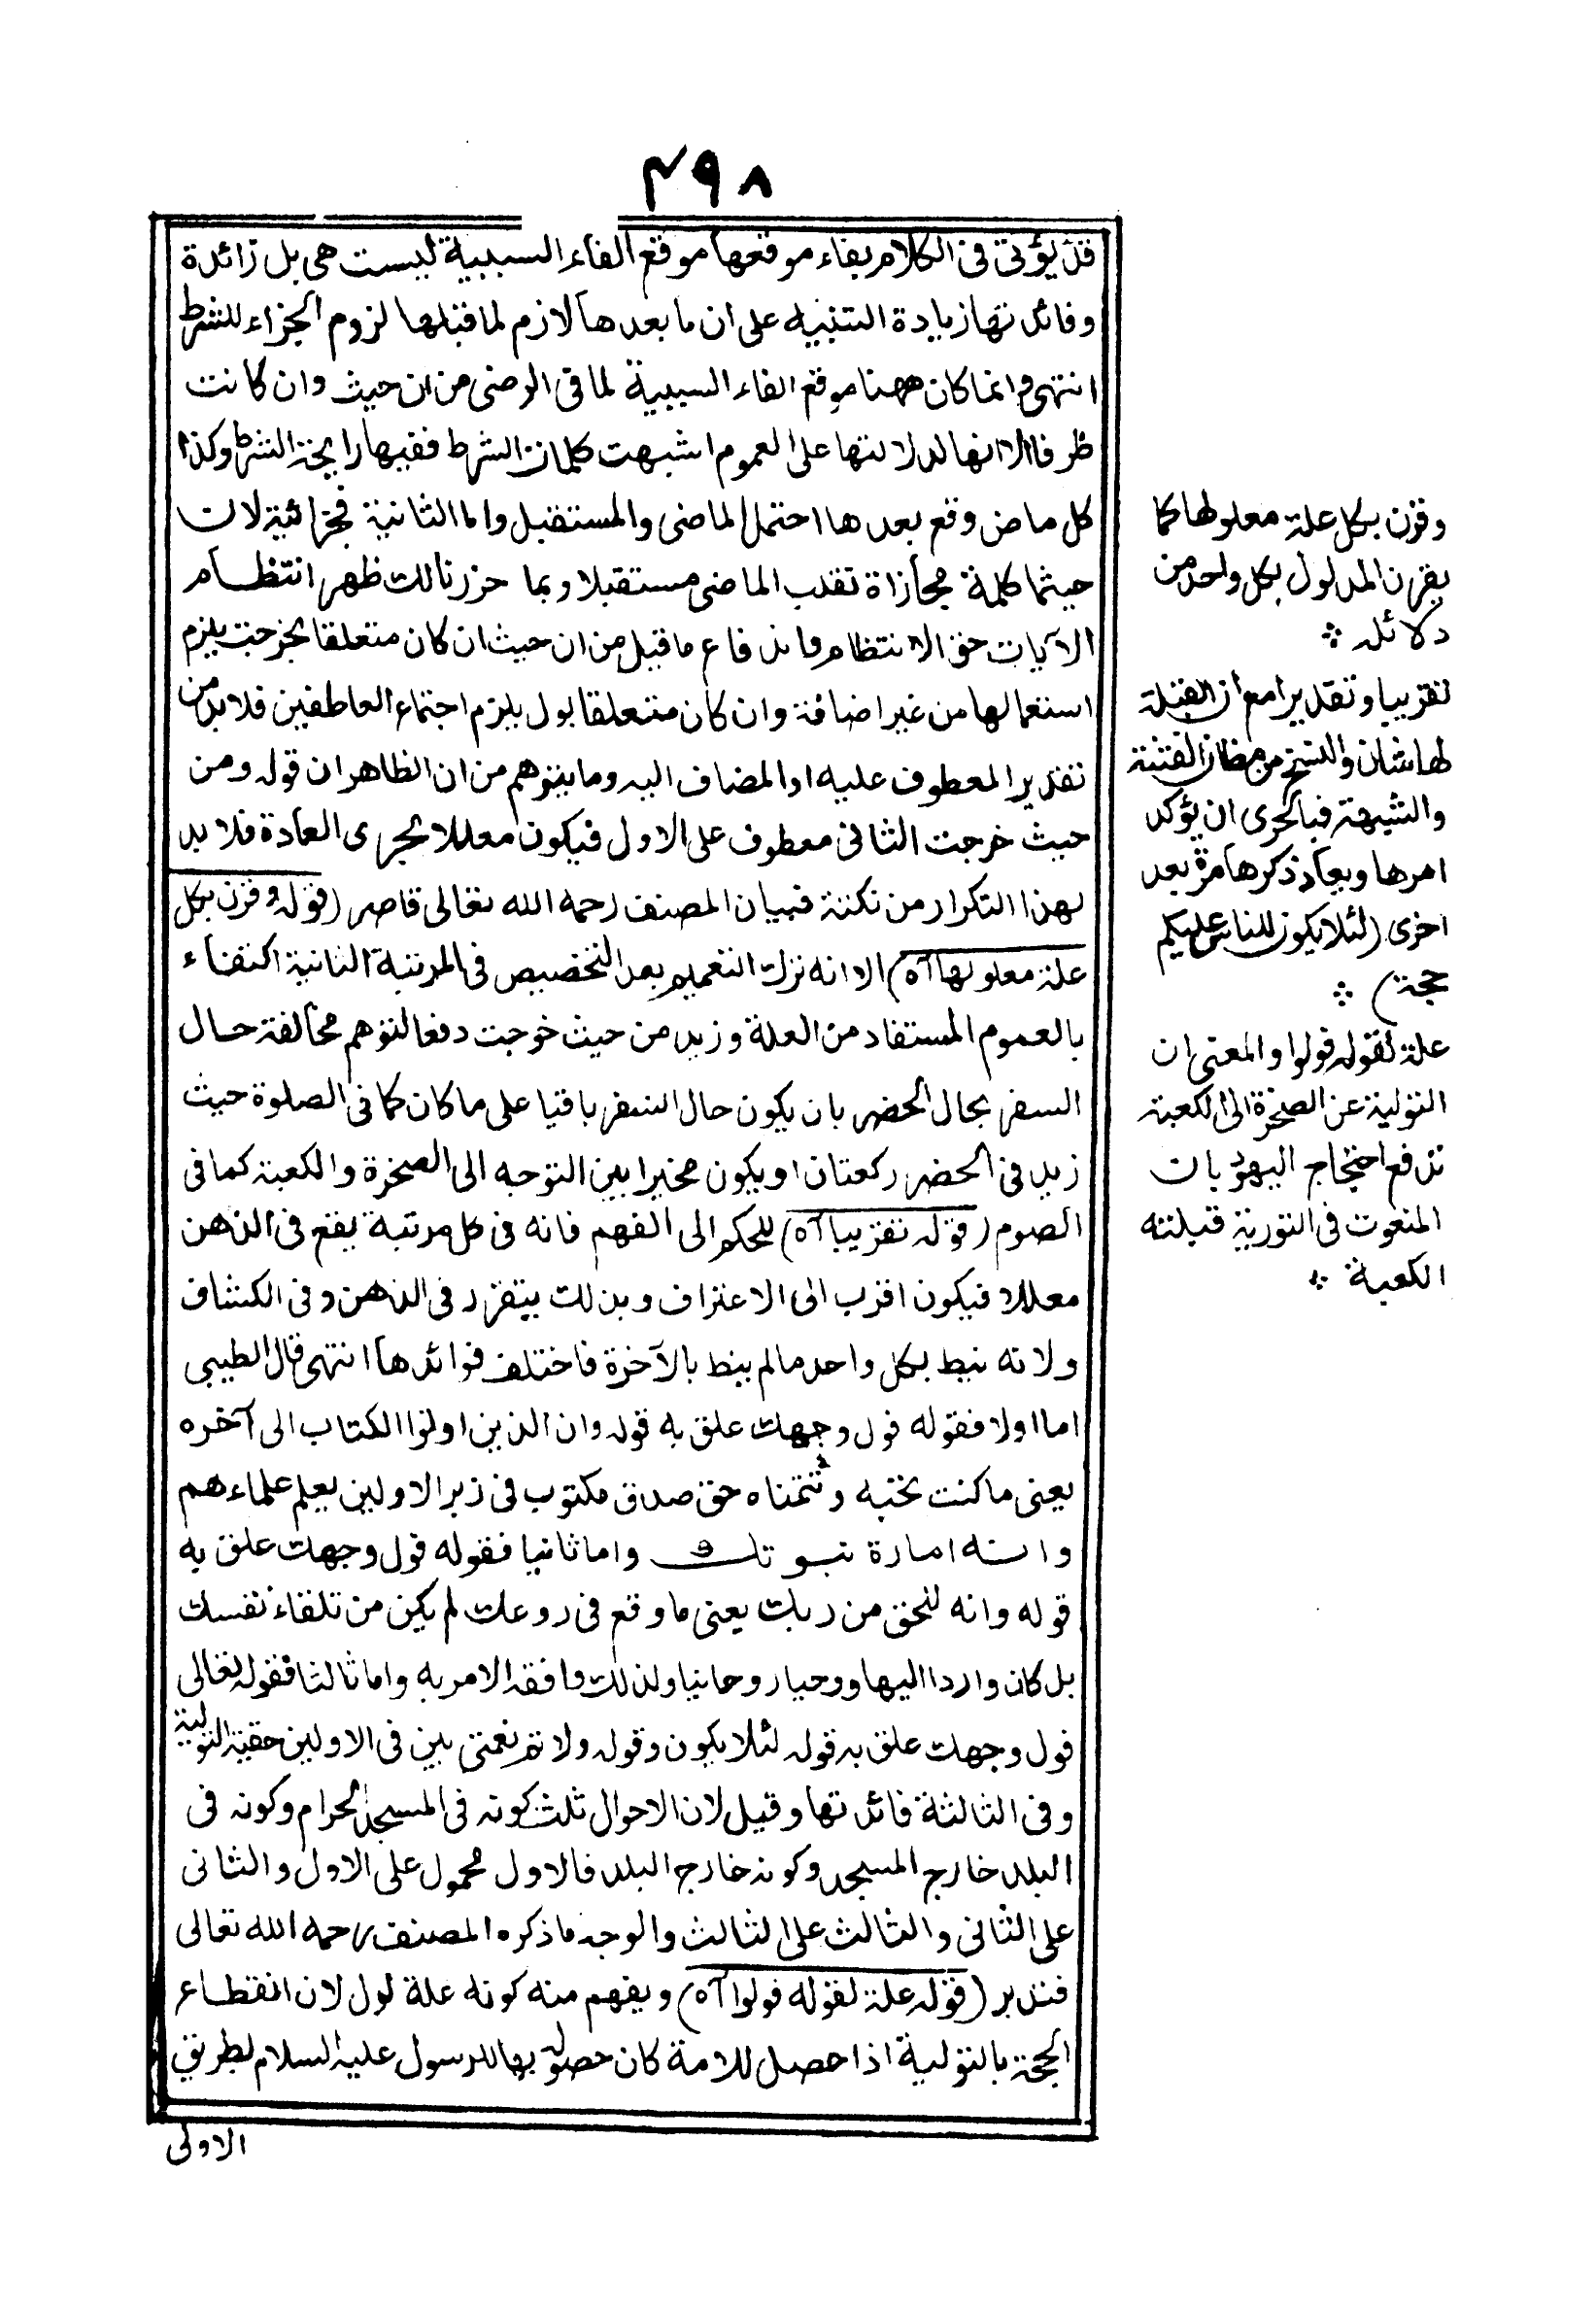 ٤٩٨
قد يؤتى فى الكلام بفاء موقعها موقع الفاء السببية ليست هى بل زائدة
وفائدتها زيادة التنبيه على ان ما بعدها لازم لما قبلها لزوم الجزاء للشرط
انتهى وانما كان ههنا موقع الفاء السببية لما فى الرضى من ان حيث وان كانت
ظرفا الا انها لدلالتها على العموم اشبهت كلمات الشرط ففيها رايحة الشرط وكذا
كل ماض وقع بعدها احتمل الماضى والمستقبل واما الثانية فجزائية لان
حيثما كلمة مجازاة تقلب الماضى مستقبلا وبما حررنا لك ظهر انتظام
الآيات حق الانتظام واندفاع ما قيل من ان حيث ان كان متعلقا بخرجت يلزم
استعمالها من غير اضافة وان كان متعلقا بول يلزم اجتماع العاطفين فلا بد من
تقدير المعطوف عليه او المضاف اليه وما يتوهم من ان الظاهر ان قوله ومن
حيث خرجت الثانى معطوف على الاول فيكون معللا بجرى العادة فلا بد
لهذا التكرار من نكتة فبيان المصنف رحمه الله تعالى قاصر (قوله وقرن بكل
علة معلولها آه) الا انه ترك التعميم بعد التخصيص فى المرتبة الثانية اكتفاء
بالعموم المستفاد من العلة وزيد من حيث خرجت دفعا لتوهم مخالفة حال
السفر بحال الحضر بان يكون حال السفر باقيا على ما كان كما فى الصلوة حيث
زيد فى الحضر ركعتان او يكون مخيرا بين التوجه الى الصخرة والكعبة كما فى
الصوم (قوله تقريبا آه) للحكم الى الفهم فانه فى كل مرتبة يقع فى الذهن
معللا فيكون اقرب الى الاعتراف وبذلك يتقرر فى الذهن وفى الكشاف
ولانه نيط بكل واحد مالم ينط بالآخرة فاختلف فوائدها انتهى قال الطيبى
اما اولا فقوله فول وجهك علق به قوله وان الذين اوتوا الكتاب الى آخره
يعنى ما كنت تحبه وتتمناه حق صدق مكتوب فى زبر الاولين يعلم علماءهم
وانه امارة نبوتك واما ثانيا فقوله فول وجهك علق به
قوله وانه للحق من ربك يعنى ما وقع فى روعك لم يكن من تلقاء نفسك
بل كان واردا الٰهيا ووحيا روحانيا ولذلك وافقه الامر به واما ثالثا فقوله تعالى
فول وجهك علق به قوله لئلا يكون وقوله ولاتم نعمتى بين فى الاولين حقية التولية
وفى الثالثة فائدتها وقيل لان الاحوال ثلث كونه فى المسجد الحرام وكونه فى
البلد خارج المسجد وكونه خارج البلد فالاول محمول على الاول والثانى
على الثانى والثالث على الثالث والوجه ما ذكره المصنف رحمه الله تعالى
فتدبر (قوله علة لقوله فولوا آه) ويفهم منه كونه علة لول لان انقطاع
الحجة بالتولية اذا حصل للامة كان حصوله بها للرسول عليه السلام بطريق
الاولى
وقرن بكل علة معلولها كما
يقرن المدلول بكل واحد من
دلائله ∴
تقريبا وتقديرا مع ان القبلة
لها شان والنسخ من مظان الفتنة
والشبهة فبالحرى ان يؤكد
امرها ويعاد ذكرها مرة بعد
اخرى (لئلا يكون للناس عليكم
حجة) ∴
علة لقوله فولوا والمعنى ان
التولية عن الصخرة الى الكعبة
تدفع احتجاج اليهود بان
المنعوت فى التورية قبلته
الكعبة ∴